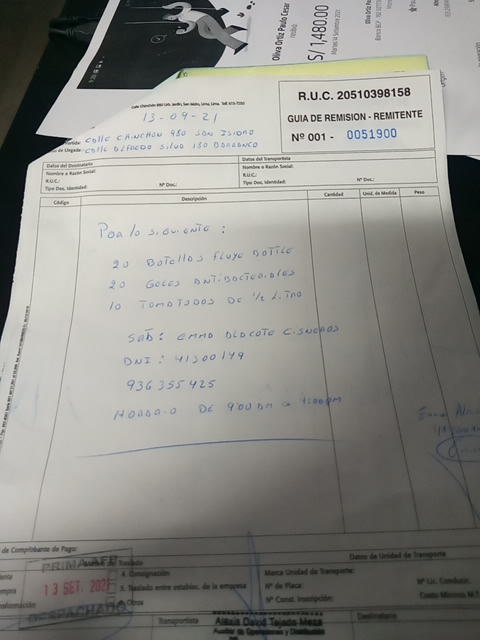 Oliva Ortiz Paulo Cesar
S/ 1,480.00
Calle Chinchón 980 Urb. Jardín, San Isidro, Lima, Lima.
13-09-21
R.U.C. 20510398158
GUIA DE REMISION - REMITENTE
Nº 001 - 0051900
CALLE CHINCHON 980 SAN ISIDRO
de Llegada: CALLE ALFREDO SILVA 130 BARRANCO
Datos del Destinatario
Datos del Transportista
Nombre o Razón Social:
Nombre o Razón Social:
R.U.C.:
R.U.C.:
Tipo Doc. Identidad: Nº Doc.:
Tipo Doc. Identidad: Nº Doc.:
Código Descripción Cantidad Unid. de Medida Peso
POR lo SIGUIENTE:
20 BOTELLAS FLUYE BOTTLE
20 GELES ANTIBACTERIALES
10 TOMATODOS DE 1/2 LITRO
DNI: 41300149
936355425
HORARIO DE
de Comprobante de Pago:
Datos de Unidad de Transporte
PRIMA AFP
13 SET. 2021
DESPACHADO
Traslado
4. Consignación
Marca Unidad de Transporte:
X. Traslado entre establec. de la empresa
Nº de Placa:
Nº Lic. Conducir.
Otros
Nº Const. Inscripción:
Costo Mínimo
Transportista
Alexis David Tejada Meza
Auxiliar de Operaciones y Distribución
Destinatario